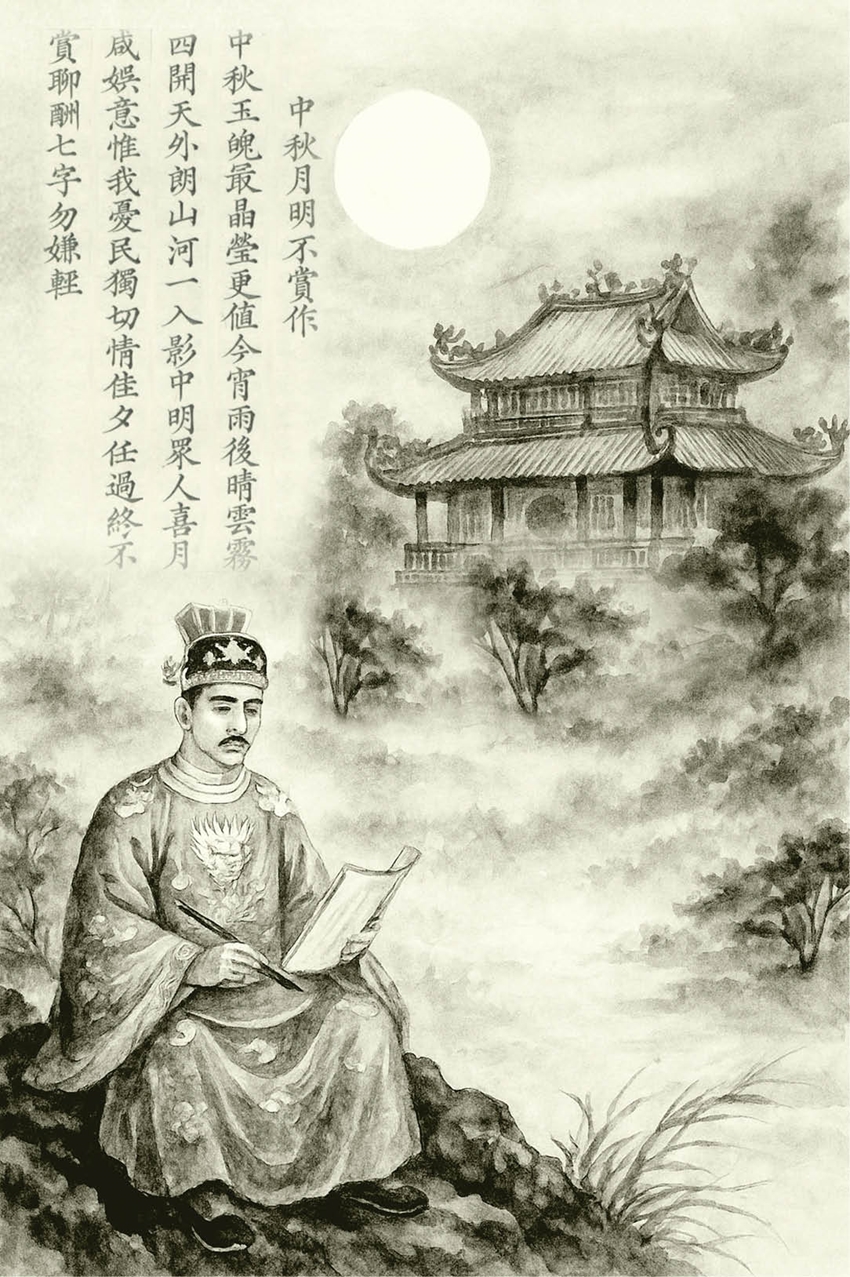 中秋月明不賞作
中秋玉魄最晶瑩更值今宵雨後晴雲霧
四開天外朗山河一入影中明眾人喜月
咸娛意惟我憂民獨切情佳夕任過終不
賞聊酬七字勿嫌輕